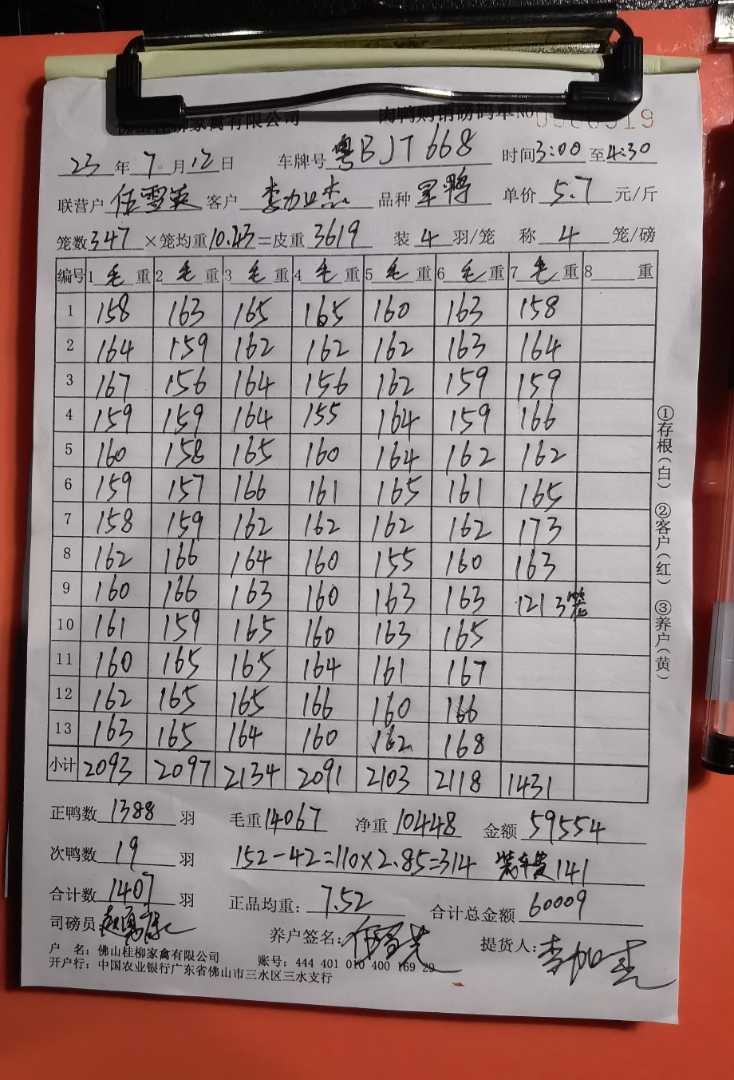 家禽有限公司 肉鸭购销磅码单No
23年7月12日 车牌号 粤BJT668 时间3:00至4:30
联营户 任雪英 客户 李加杰 品种 单价 5.7 元/斤
笼数347×笼均重10.43=皮重 3619 装 4 羽/笼 称 4 笼/磅
编号 1 毛 重 2 毛 重 3 毛 重 4 毛 重 5 毛 重 6 毛 重 7 毛 重 8 重
1 158 163 165 165 160 163 158
2 164 159 162 162 162 163 164
3 167 156 164 156 162 159 159
4 159 159 164 155 164 159 166
5 160 158 165 160 164 162 162
6 159 157 166 161 165 161 165
7 158 159 162 162 162 162 173
8 162 166 164 160 155 160 163
9 160 166 163 160 163 163 121 3笼
10 161 159 165 160 163 165
11 160 165 165 164 161 167
12 162 165 165 166 160 166
13 163 165 164 160 162 168
小计 2093 2097 2134 2091 2103 2118 1431
①存根(白) ②客户(红) ③养户(黄)
正鸭数 1388 羽 毛重14067 净重 10448 金额 59554
次鸭数 19 羽 152-42=110×2.85=314 装车费141
合计数 1407 羽 正品均重: 7.52 合计总金额 60009
司磅员 养户签名: 提货人: 李加杰
户 名: 佛山桂柳家禽有限公司 账号: 444 401 010 400 169 29
开户行: 中国农业银行广东省佛山市三水区三水支行